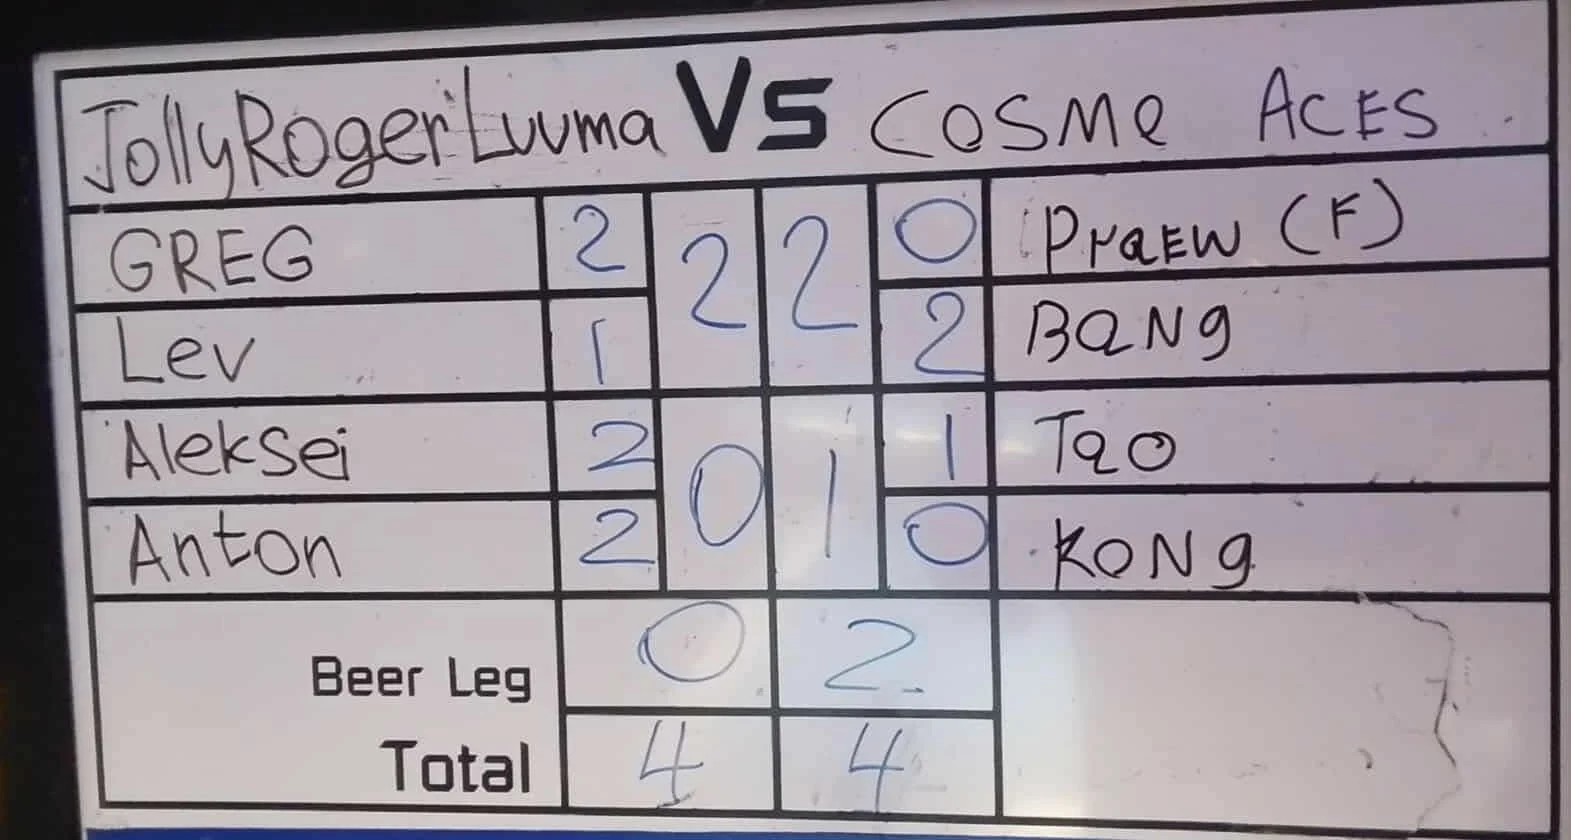 JollyRogerLuuma Vs COSMe ACES
GREG 2 2 2 0 PraEW (F)
Lev 1 2 BaNg
Aleksei 2 0 1 1 Tao
Anton 2 0 KONg
Beer Leg 0 2
Total 4 4